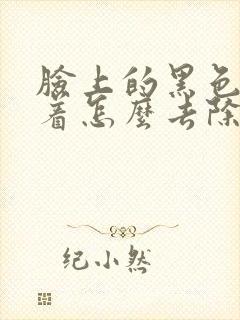 臉上的黑色
着怎麼去除
纪小然